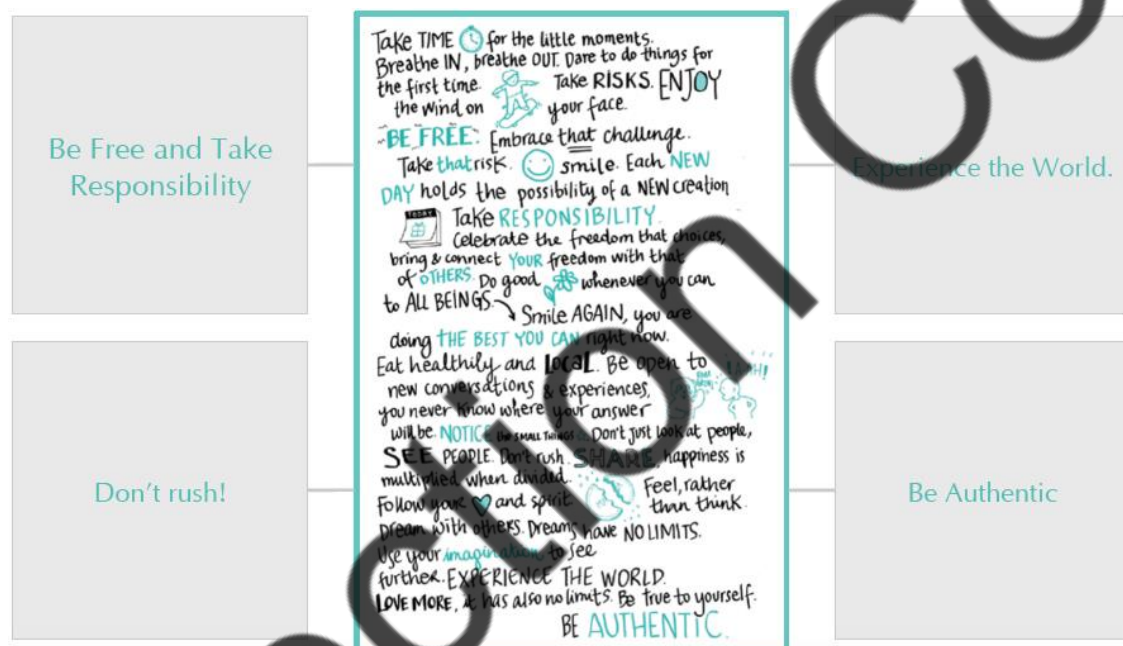 Be Free and Take
Responsibility
Don't rush!
Take TIME for the little moments.
Breathe IN, breathe OUT. Dare to do things for
the first time. Take RISKS. ENJOY
the wind on your face.
BE FREE. Embrace that challenge.
Take that risk. smile. Each NEW
DAY holds the possibility of a NEW creation
TODAY Take RESPONSIBILITY.
Celebrate the freedom that choices,
bring & connect YOUR freedom with that
of OTHERS. Do good whenever you can
to ALL BEINGS. Smile AGAIN, you are
doing THE BEST YOU CAN right now.
Eat healthily and LOCAL. Be open to
new conversations & experiences,
you never know where your answer
will be. NOTICE the SMALL THINGS Don't just look at people,
SEE PEOPLE. Don't rush. SHARE, happiness is
multiplied when divided.
Follow your and spirit Feel, rather
than think.
Dream with others. Dreams have NO LIMITS.
Use your imagination to see
further. EXPERIENCE THE WORLD.
LOVE MORE, it has also no limits. Be true to yourself.
BE AUTHENTIC.
Experience the World.
Be Authentic